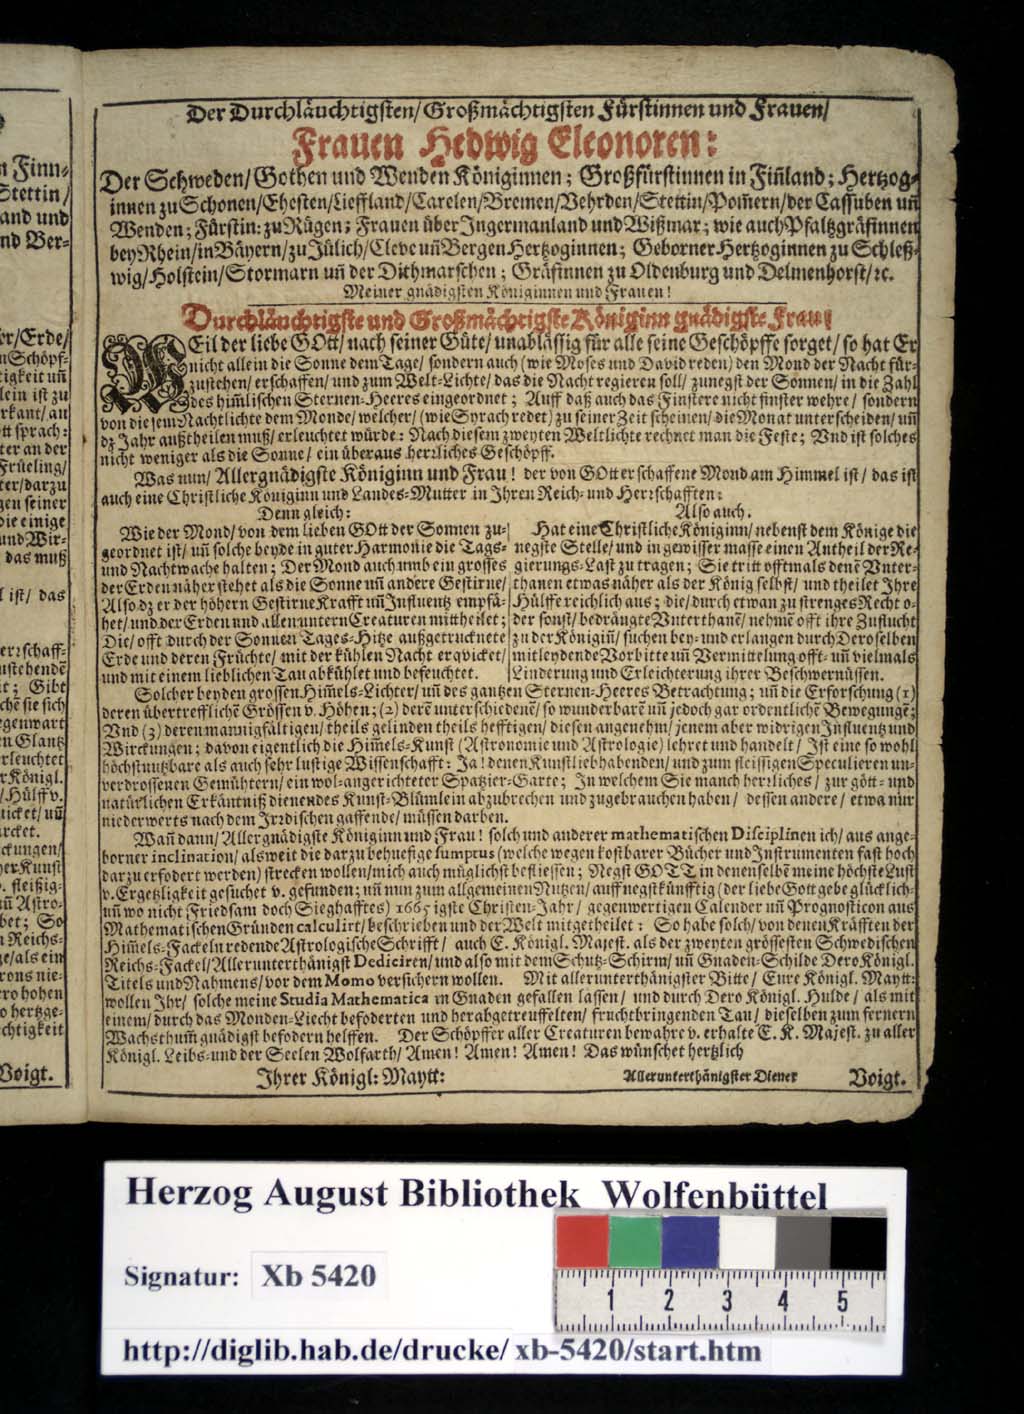 n Finn-
Stettin/
and und
nd Ver-
er/Erde/
n Schöpf-
tigkeit uñ
lein ist zu
rkant/ an
tt sprach:
ter an der
Früeling/
ter/darzu
gen seiner
die einige
und Wir-
das muß
l ist/ das
Voigt.
Der Durchläuchtigsten/ Großmächtigsten Fürstinnen und Frauen/
Frauen Hedwig Eleonoren:
Der Schweden/ Gothen und Wenden Königinnen; Großfürstinnen in Fiñland; Hertzog-
innen zu Schonen/Ehesten/Lieffland/Carelen/Bremen/Vehrden/Stettin/Pom̃ern/der Cassuben uñ
Wenden; Fürstin: zu Rügen; Frauen über Ingermanland und Wißmar; wie auch Pfaltzgräfinnen
bey Rhein/in Bäyern/zu Jülich/Cleve uñ Bergen Hertzoginnen; Geborner Hertzoginnen zu Schleß-
wig/ Holstein/ Stormarn uñ der Dithmarschen; Gräfinnen zu Oldenburg und Delmenhorst/ ꝛc.
Meiner gnädigsten Königinnen und Frauen!
Durchläuchtigste und Großmächtigste Königinn gnädigste Frau!
WEil der liebe GOtt/ nach seiner Güte/ unablässig für alle seine Geschöpffe sorget/ so hat Er
nicht allein die Sonne dem Tage/ sondern auch (wie Moses und David reden) den Mond der Nacht für-
zustehen/ erschaffen/ und zum Welt-Lichte/ das die Nacht regieren soll/ zunegst der Sonnen/ in die Zahl
des him̃lischen Sternen-Heeres eingeordnet; Auff daß auch das Finstere nicht finster wehre/ sondern
von diesem Nachtlichte dem Monde/ welcher/ (wie Syrach redet) zu seiner Zeit scheinen/ die Monat unterscheiden/ uñ
dz Jahr außtheilen muß/ erleuchtet würde: Nach diesem zweyten Weltlichte rechnet man die Feste; Vnd ist solches
nicht weniger als die Sonne/ ein überaus herrliches Geschöpff.
Was nun/ Allergnädigste Königinn und Frau! der von GOtt erschaffene Mond am Himmel ist/ das ist
auch eine Christliche Königinn und Landes-Mutter in Ihren Reich- und Herrschafften:
Denn gleich:
Wie der Mond/ von dem lieben GOtt der Sonnen zu-
geordnet ist/ uñ solche beyde in guter Harmonie die Tags-
und Nachtwache halten; Der Mond auch umb ein grosses
der Erden näher stehet als die Sonne uñ andere Gestirne/
Also dz er der höhern Gestirne Krafft uñ Influentz empfä-
het/ und der Erden und allen untern Creaturen mittheilet;
Die/ offt durch der Sonnen Tages-Hitze außgetrucknete
Erde und deren Früchte/ mit der kühlen Nacht erqvicket/
und mit einem lieblichen Tau abkühlet und befeuchtet.
Also auch.
Hat eine Christliche Königinn/ nebenst dem Könige die
negste Stelle/ und in gewisser masse einen Antheil der Re-
gierungs-Last zu tragen; Sie tritt offtmals denẽ Vnter-
thanen etwas näher als der König selbst/ und theilet Ihre
Hülffe reichlich aus; die/ durch etwan zu strenges Recht o-
der sonst/ bedrängte Vnterthanẽ/ nehmẽ offt ihre Zuflucht
zu der Königiñ/ suchen bey- und erlangen durch Deroselben
mitleydende Vorbitte uñ Vermittelung offt- uñ vielmals
Linderung und Erleichterung ihrer Beschwernüssen.
Solcher beyden grossen Him̃els-Lichter/ uñ des gantzen Sternen-Heeres Betrachtung; uñ die Erforschung (1)
deren übertrefflichẽ Grössen v. Höhen; (2) derẽ unterschiedenẽ/ so wunderbarẽ uñ jedoch gar ordentlichẽ Bewegungẽ;
Vnd (3) deren mannigfältigen/ theils gelinden theils hefftigen/ diesen angenehm/ jenem aber widrigen Influentz und
Wirckungen; davon eigentlich die Him̃els-Kunst (Astronomie und Astrologie) lehret und handelt/ Ist eine so wohl
höchstnutzbare als auch sehr lustige Wissenschafft: Ja! denen Kunstliebhabenden/ und zum fleissigen Speculieren un-
verdrossenen Gemühtern/ ein wol-angerichteter Spatzier-Garte; In welchem Sie manch herrliches/ zur gött- und
natürlichen Erkäntniß dienendes Kunst-Blümlein abzubrechen und zugebrauchen haben/ dessen andere/ etwa nur
niederwerts nach dem Irrdischen gaffende/ müssen darben.
Wañ dann/ Allergnädigste Königinn und Frau! solch und anderer mathematischen Disciplinen ich/ aus ange-
borner inclination/ als weit die darzu behuefige sumptus (welche wegen kostbarer Bücher und Instrumenten fast hoch
darzu erfodert werden) strecken wollen/ mich auch müglichst befliessen; Negst GOTT in denenselbẽ meine höchste Lust
v. Ergetzligkeit gesuchet v. gefunden; uñ nun zum allgemeinen Nutzen/ auff negstkünfftig (der liebe Gott gebe glücklich-
uñ wo nicht Friedsam doch Sieghafftes) 1665igste Christen-Jahr/ gegenwertigen Calender uñ Prognosticon aus
Mathematischen Gründen calculirt/ beschrieben und der Welt mitgetheilet: So habe solch/ von denen Kräfften der
Him̃els-Fackeln redende Astrologische Schrifft/ auch E. Königl. Majest. als der zweyten grössesten Schwedischen
Reichs-Fackel/ Allerunterthänigst Dediciren/ und also mit dem Schutz-Schirm/ uñ Gnaden-Schilde Dero Königl.
Titels und Nahmens/ vor dem Momo versichern wollen. Mit allerunterthänigster Bitte/ Eure Königl. Maytt:
wollen Ihr/ solche meine Studia Mathematica in Gnaden gefallen lassen/ und durch Dero Königl. Hulde/ als mit
einem/ durch das Monden-Liecht befoderten und herabgetreuffelten/ fruchtbringenden Tau/ dieselben zum fernern
Wachsthum̃ gnädigst befodern helffen. Der Schöpffer aller Creaturen bewahre v. erhalte E. K. Majest. zu aller
Königl. Leibs- und der Seelen Wolfarth/ Amen! Amen! Amen! Das wünschet hertzlich
Ihrer Königl: Maytt: Allerunterthänigster Diener Voigt.
Herzog August Bibliothek Wolfenbüttel
Signatur: Xb 5420
1 2 3 4 5
http://diglib.hab.de/drucke/ xb-5420/start.htm